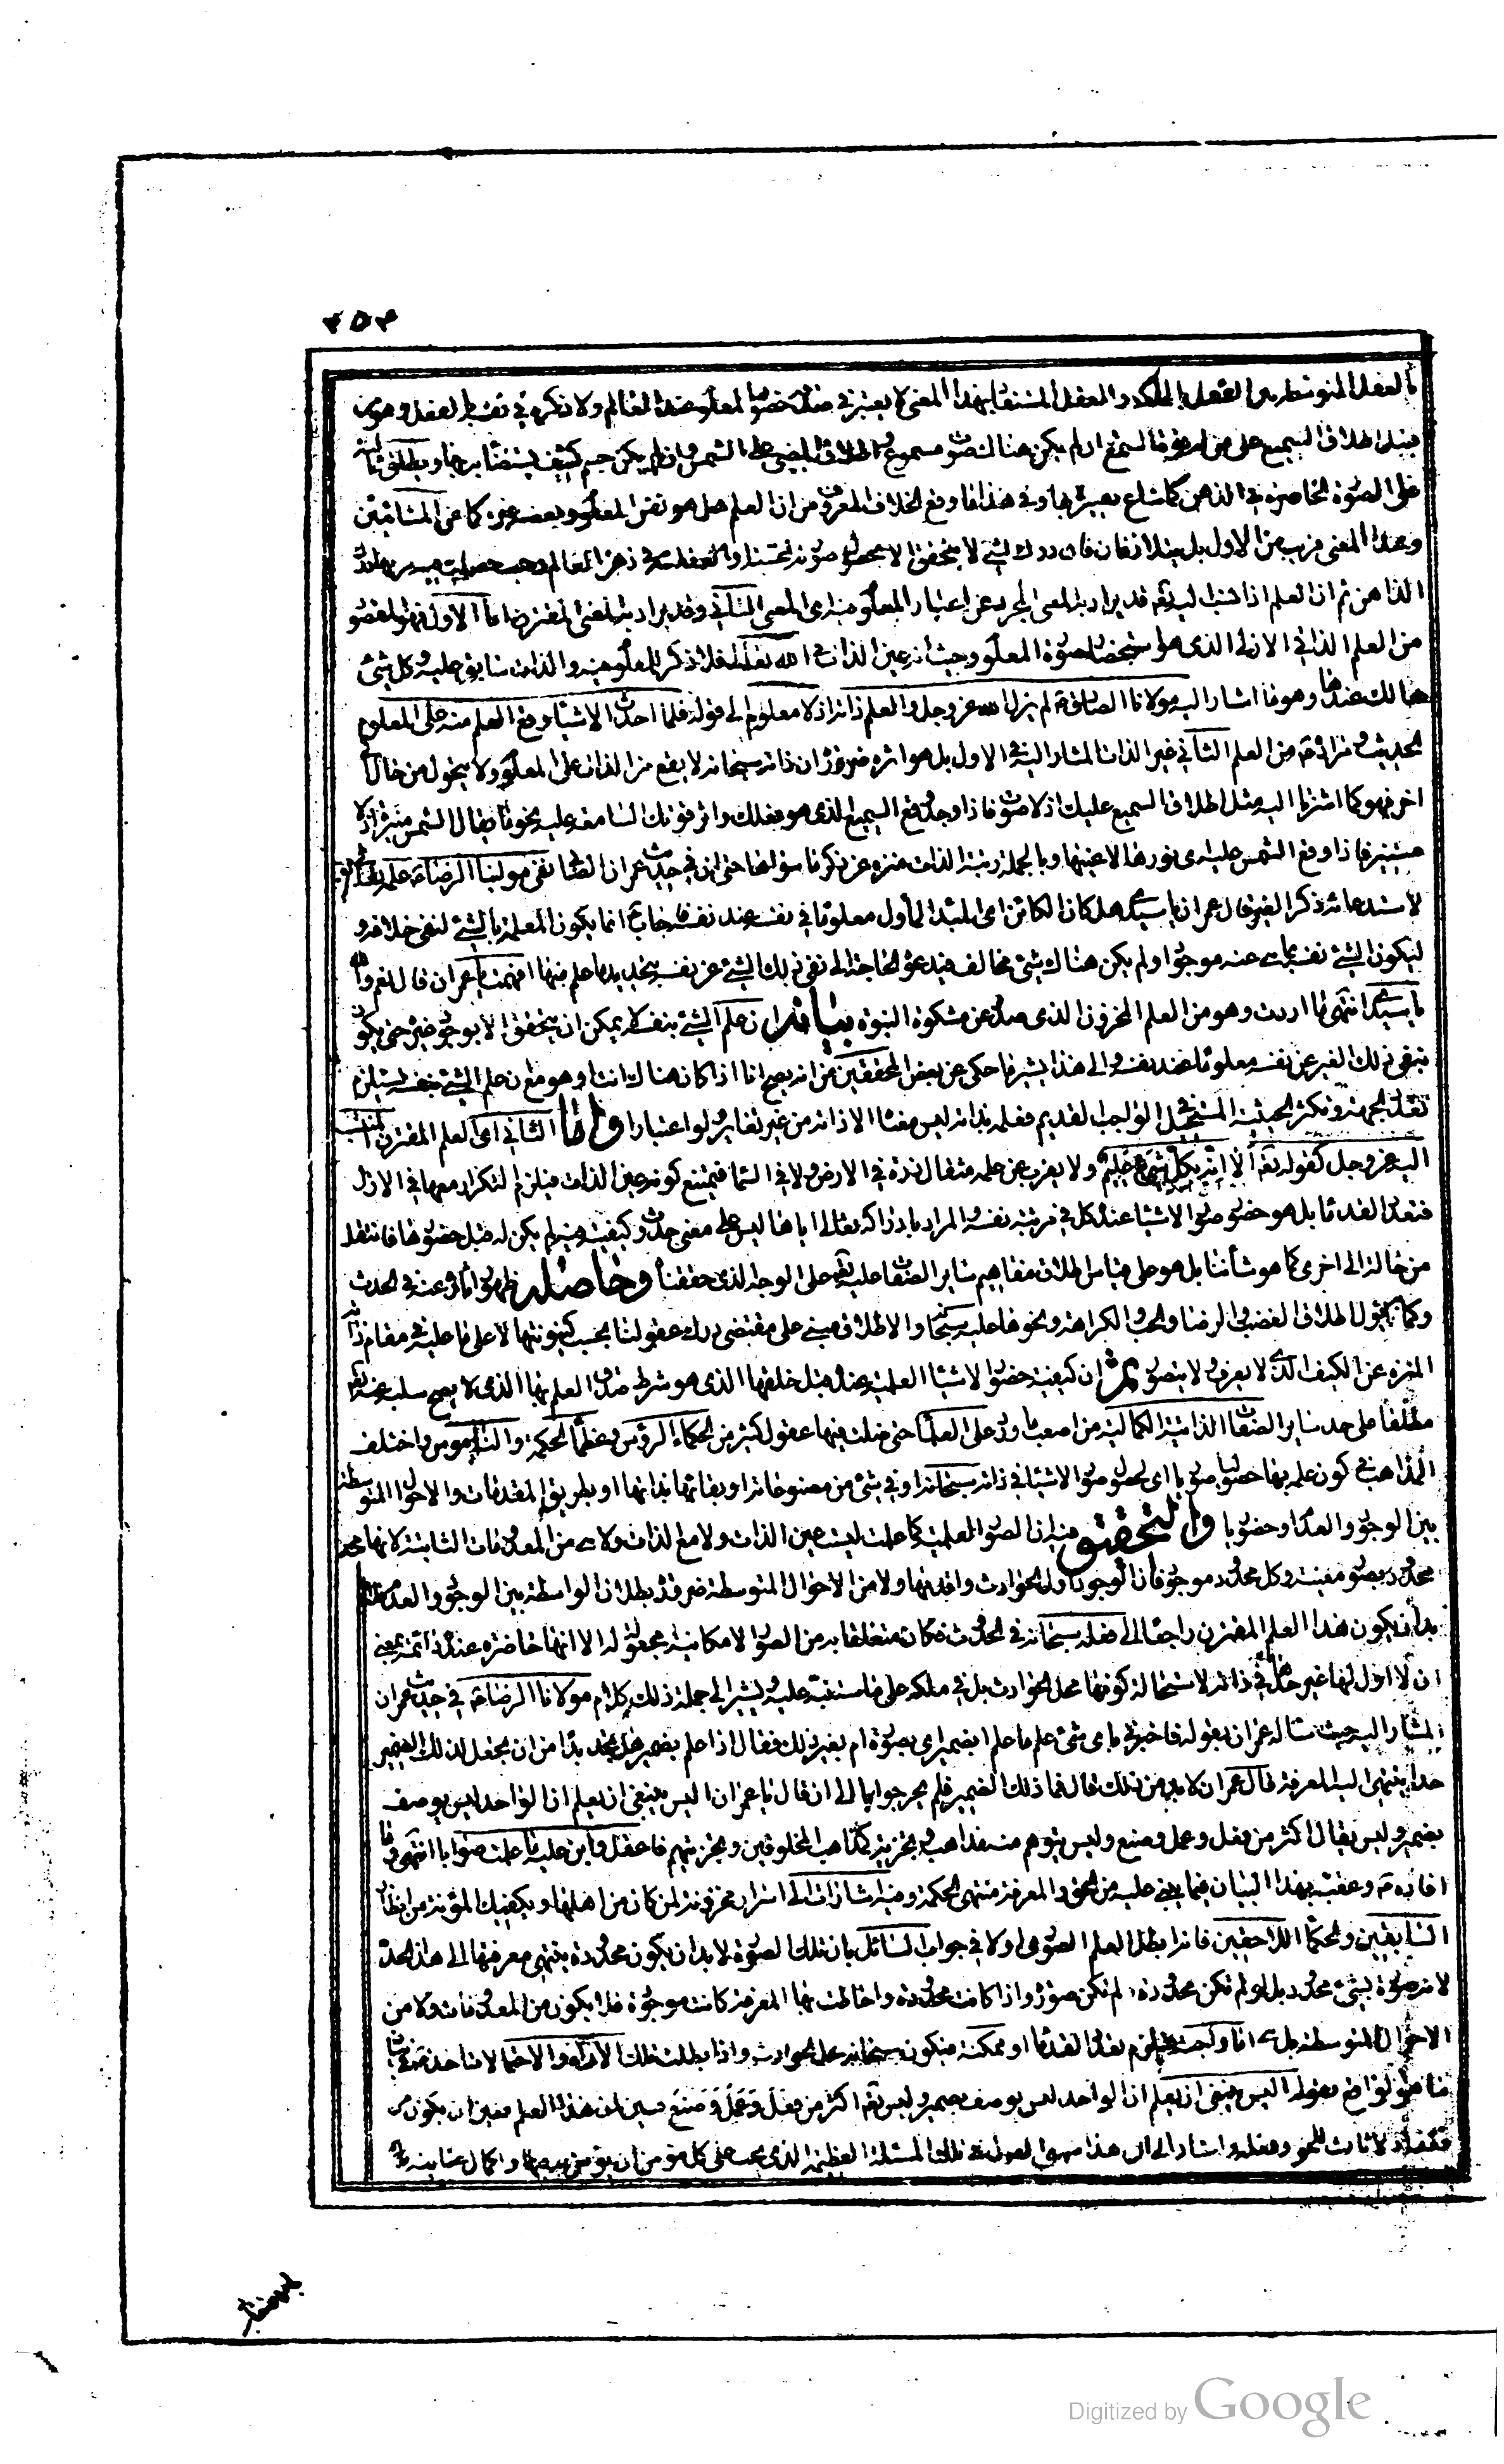 ٢٥٣
بالعقل المتوسط بين العقل بالملكة والعقل المستفاد بهذا المعنى لا يعتبر في صدقه حضور المعلوم عند العالم ولا ذكره في نفس العقل وهو
مثل اطلاق السميع على من له قوة السمع اذ لم يكن هناك صوت مسموع واطلاق المضيء على الشمس وان لم يكن جسم كثيف يستضيء بها ويطلق ثالثة
على الصورة الحاضرة في الذهن كما شاع تعبيرهم بها وفي هذا ما وقع الخلاف المعروف من ان العلم هل هو نفس المعلوم وبعضه غيره كما عن المشائين
وهذا المعنى قريب من الاول بل
الذاهن ثم ان العلم اذا نسب اليه تعالى قد يراد به المعنى المجرد عن اعتبار المعلوم فيه اي المعنى الثاني وقد يراد به المعنى المقترن اما الاول فهو المقصود
من العلم الذاتي الازلي الذي هو استحضار صورة المعلوم وحيث انه عين الذات في الله تعالى فلا ذكر للمعلوم فيه والذات سابق عليه وكل شيء
هالك عندها وهو ما اشار اليه مولانا الصادق ع لم يزل الله عز وجل والعلم ذاته اذ لا معلوم الى قوله فلما احدث الاشياء وقع العلم منه على المعلوم
الحديث ومراده ع من العلم الثاني غير الذات المشار اليه في الاول بل هو اثره ضرورة ان ذاته سبحانه لا يقع من الذات على المعلوم ولا يتحول من حال الى
اخر فهو كما اشرنا اليه مثل اطلاق السميع عليك اذ لا صوت فاذا وجد وقع السميع الذي هو فعلك واثر قوتك السامعة عليه ونحو ما يقال الشمس منيرة اذ لا
مستنير فاذا وقع الشمس عليه اي نورها لا عينها وبالجملة رتبة الذات منزه عن ذكر ما سواها حتى ان في حديث عمران الصابي نفى مولينا الرضا ع علمه بنفسه
لاستدعائه ذكر الغير قال عمران يا سيدي هل كان الكائن اي المبتدء الاول معلوما في نفسه عند نفسه فاجاب ع انما يكون المعلمة بالشيء لنفي خلافه و
ليكون الشيء نفسه بما نفي عنه موجودا ولم يكن هناك شيء يخالفه فيدعوه الحاجة الى نفي ذلك الشيء عن نفسه بتحديد ما علم منها افهمت يا عمران قال نعم والله
يا سيدي انتهى ما اردت وهو من العلم المخزون الذي صدر عن مشكوة النبوة بيانه ان علم الشيء بنفسه لا يمكن ان يتحقق الا بوجود غيره حتى يكون
بنفي ذلك الغير عن نفسه معلوما عند نفسه والى هذا يشير ما حكي عن بعض المحققين من انه يصح انا اذا كان هناك انت او هو مع ان علم الشيء بنفسه يستلزم
تعدد الجهة وتكثر الحيثية المستحيل في الواجب القديم فعلمه بذاته ليس معناه الا ذاته من غير تغاير ولو اعتبارا واما الثاني اي العلم المقترن المنتسب
اليه عز وجل كقوله تعالى الا انه بكل شيء عليم ولا يعزب عن علمه مثقال ذرة في الارض ولا في السماء فيمتنع كونه عين الذات فيلزم التكرار معها في الازل
فتعدد القدماء بل هو حضور صور الاشياء عنده كل في مرتبة نفسه والمراد بادراكه تعالى اياها ليس على معنى حدوث كيفية فيه لم يكن له قبل حضورها فانتقل
من حالة الى اخرى كما هو شأننا بل هو على قياس اطلاق مفاهيم سائر الصفات عليه تعالى على الوجه الذي حققناه وحاصله ظهور اثاره عنه في الحدث
وكما نقول اطلاق الغضب والرضا والحب والكراهة ونحوها عليه سبحانه والاطلاق مبني على مقتضى درك عقولنا بحسب كينونتها لا على ما عليه في مقام ذاته
المنزه عن الكيف الذي لا يعرف ولا يتصور ثم ان كيفية حضور الاشياء العلمية عنده قبل خلقها الذي هو شرط صدق العلم بها الذي لا يصح سلبه عنه تعالى
مطلقا على حد سائر الصفات الذاتية الكمالية من اصعب ما ورد على العلماء حتى ضلت فيها عقول كثير من الحكماء الرؤس وعظماء الحكمة والناموس واختلف
المذاهب في كون علمه بها حصوليا صوريا اي بحصول صور الاشياء في ذاته سبحانه او في شيء من مصنوعاته او بقائمها بذاتها او بطريق المعدومات والاحوال المتوسطة
بين الوجود والعدم او حضوريا والتحقيق فيه ان الصور العلمية كما علمت ليست عين الذات ولا مع الذات ولا هي من المعدومات الثابتة لانها
محدود بصور معينة وكل محدود موجود فان الوجود اول الحوادث واقدمها ولا من الاحوال المتوسطة ضرورة بطلان الواسطة بين الوجود والعدم فلا
بد ان يكون هذا العلم المقترن راجعا الى فعله سبحانه في الحدوث فكان متعلقا به من الصور الامكانية مجعولة له الا انها حاضرة عنده دائمة بمعنى
ان لا اول لها غير حال في ذاته لاستحالة كونها محل الحوادث بل في ملكه على ما سننبه عليه ويشير الى جملة ذلك كلام مولانا الرضا ع في حديث عمران
المشار اليه حيث سأله عمران بقوله فاخبرني باي شيء علم ما علم ابضمير اي بصورة ام بغير ذلك فقال اذا علم بضمير هل يجد بدا من ان يجعل لذلك الضمير
حدا ينتهي اليه المعرفة قال عمران لا بد من ذلك قال فما ذلك الضمير فلم يحر جوابا الى ان قال يا عمران اليس ينبغي ان يعلم ان الواحد ليس يوصف
بضمير وليس يقال اكثر من فعل وعمل وصنع وليس يتوهم منه مذاهب وتجزية كمذاهب المخلوقين وتجزيتهم فاعقل وابن عليه ما علمت صوابا انتهى وما
افاده ع وعقبه بهذا البيان فيما يبني عليه من الحق والمعرفة منتهى الحكمة وفيه اشارات الى اسرار مخزونة لمن كان من اهلها ويكفيك المؤنة من ابطال
السابقين والحكماء اللاحقين فانه ابطل العلم الصوري اولا في جواب السائل بان تلك الصورة لا بد ان يكون محدودة ينتهي معرفتها الى هذا الحد
لانه صورة لشيء محدود بل لو لم تكن محدودة لم تكن صورة واذا كانت محدودة واحاطت بها المعرفة كانت موجودة فلا يكون من المعدومات ولا من
الاحوال المتوسطة بل هي اما واجبة فيلزم تعدد القدماء او ممكنة فيكون سبحانه محل الحوادث واذا بطلت تلك الاراء والاحتمالات اخذ ع في بيان
ما هو الواقع بقوله اليس ينبغي ان يعلم ان الواحد ليس يوصف بضمير وليس يقال اكثر من فعل وعمل وصنع فبين ان هذا العلم
العظيمة الذي يجب على كل مؤمن ان
Digitized by Google